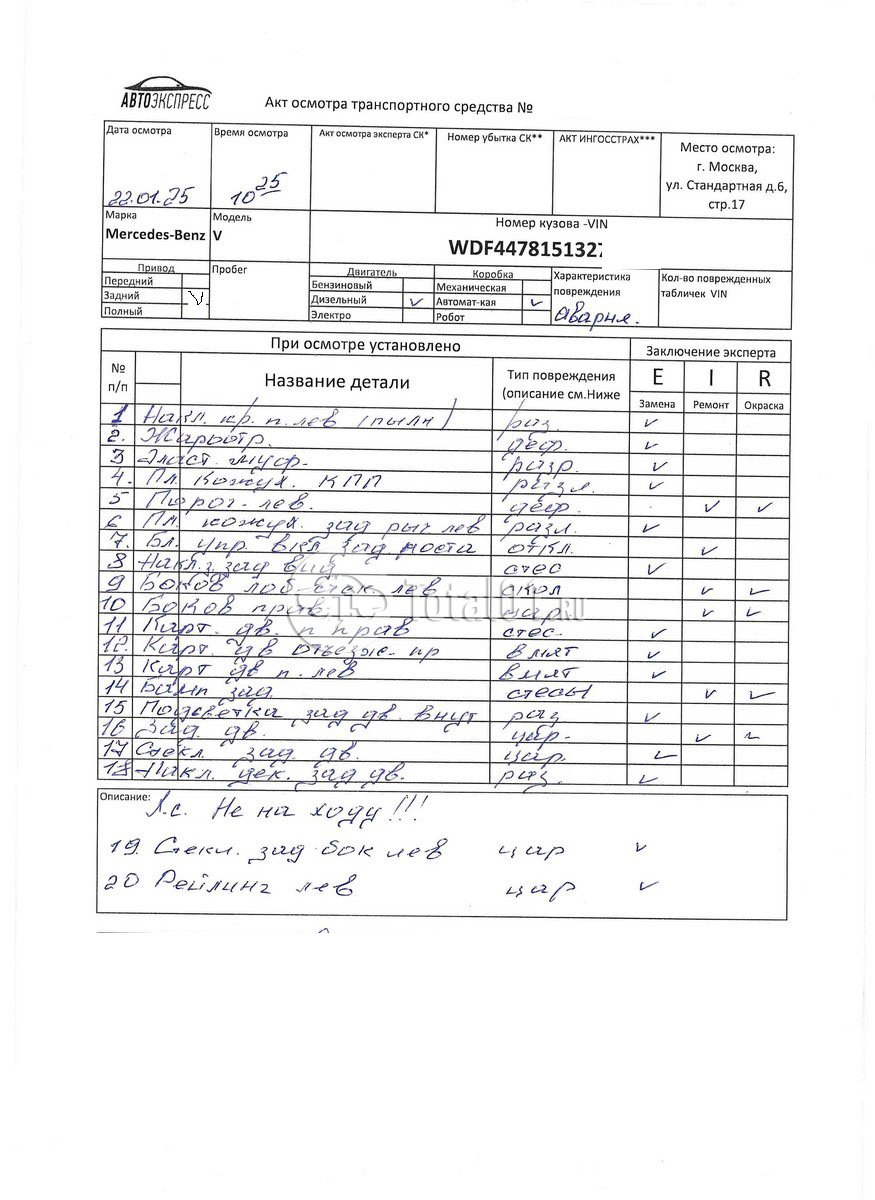 АВТОЭКСПРЕСС
Акт осмотра транспортного средства №
Дата осмотра
Время осмотра
Акт осмотра эксперта СК*
Номер убытка СК**
АКТ ИНГОССТРАХ***
Место осмотра:
г. Москва,
ул. Стандартная д.6,
стр.17
22.01.25
10 25
Марка
Модель
Номер кузова -VIN
Mercedes-Benz
V
WDF447815132
Привод
Пробег
Двигатель
Коробка
Характеристика
повреждения
Кол-во поврежденных
табличек VIN
Передний
Бензиновый
Механическая
Задний V
Дизельный ✓
Автомат-кая ✓
Полный
Электро
Робот
Авария.
При осмотре установлено
Заключение эксперта
№
п/п
Название детали
Тип повреждения
(описание см.Ниже
E I R
Замена Ремонт Окраска
1 Накл. кр. п. лев (пылн) раз. ✓
2. деф. ✓
3 Эласт. муф. разр. ✓
4. Пл. кожух. КПП разл. ✓
5 Порог лев. деф. ✓ ✓
6 Пл. кожух. зад рыч лев разл. ✓
7. Бл. упр. вкл зад моста откл. ✓
8 Накл. з. зад стес ✓
9 Боков лоб стек лев скол ✓ ✓
10 Боков прав цар. ✓ ✓
11 Карт. дв. п прав стес. ✓
12. Карт. дв отъезж. пр вмят ✓
13 Карт дв п. лев вмят ✓
14 Бамп зад. стесы ✓ ✓
15 Подсветка зад дв. внут раз ✓
16 Зад. дв. цар. ✓ ✓
17 Стекл. зад. дв. цар. ✓
18 Накл. дек. зад дв. раз. ✓
Описание:
Не на ходу!!!
19. Стекл. зад бок лев цар ✓
20 Рейлинг лев цар ✓
Total01.RU